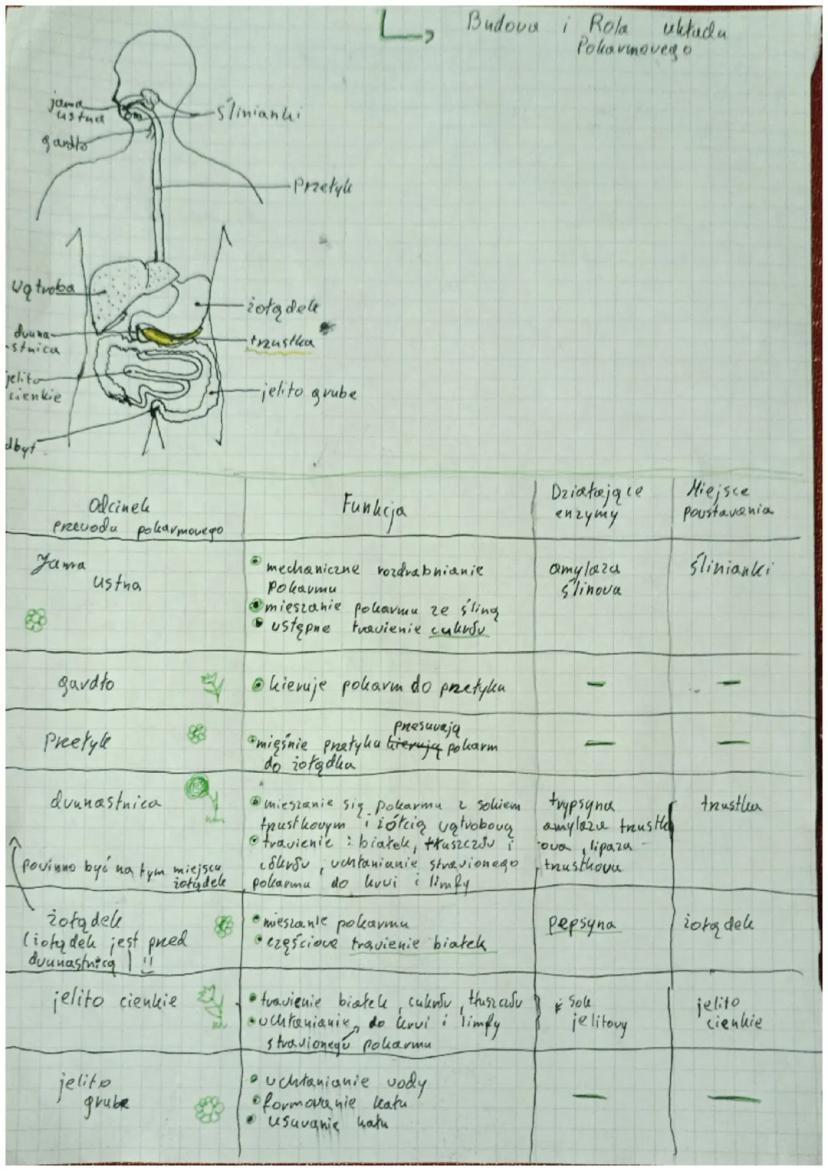 Budowa i Rola układu
Pokarmowego
jama
ustna
ślinianki
gardło
Przełyk
Wątroba
żołądek
dwuna-
stnica
trzustka
jelito
cienkie
jelito grube
dbyt
Odcinek
przewodu pokarmowego
Funkcja
Działające
enzymy
Miejsce
powstawania
Jama
ustna
mechaniczne rozdrabnianie
pokarmu
mieszanie pokarmu ze śliną
wstępne trawienie cukrów
amylaza
ślinowa
ślinianki
gardło
kieruje pokarm do przełyku
—
—
Przełyk
przesuwają
mięśnie przełyku kierują pokarm
do żołądka
—
—
dwunastnica
powinno być na tym miejscu
żołądek
mieszanie się pokarmu z sokiem
trzustkowym i żółcią wątrobową
trawienie: białek, tłuszczów i
cukrów, wchłanianie strawionego
pokarmu do krwi i limfy
trypsyna
amylaza trzustk
owa, lipaza -
trzustkowa
trzustka
żołądek
(żołądek jest przed
dwunastnicą) !!
mieszanie pokarmu
częściowe trawienie białek
pepsyna
żołądek
jelito cienkie
trawienie białek, cukrów, tłuszczów
wchłanianie do krwi i limfy
strawionego pokarmu
sok
jelitowy
jelito
cienkie
jelito
grube
wchłanianie wody
formowanie kału
usuwanie kału
—
—